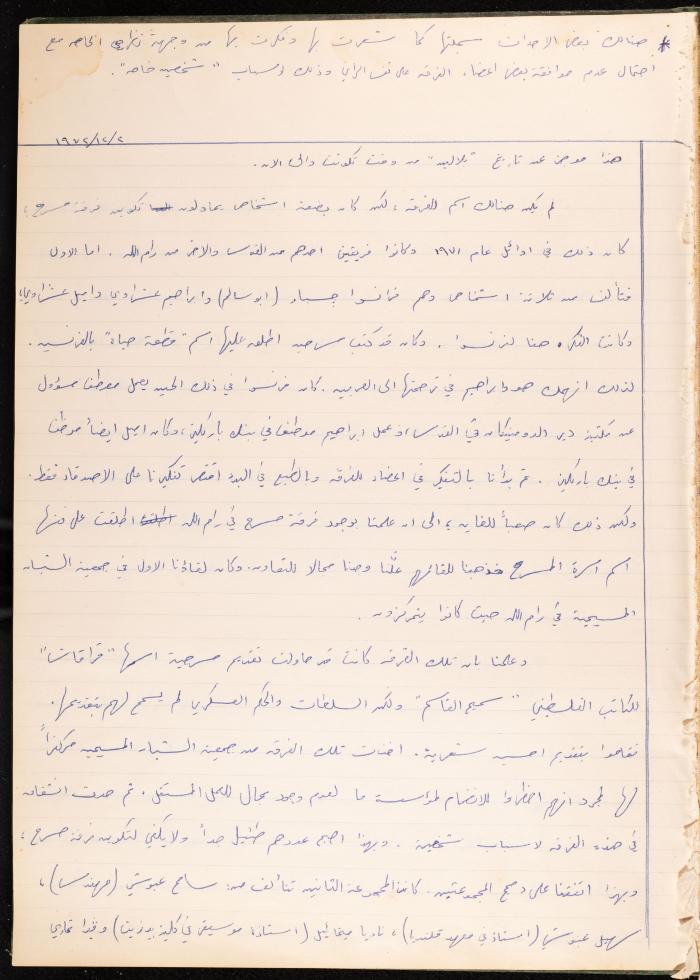 * هنالك بعض الاحداث سجلتها كما شعرت بها وفكرت بها من وجهة نظري الخاصه مع
احتمال عدم موافقة بعض اعضاء الفرقه على نفس الرأي وذلك لاسباب "شخصيه خاصه".
١٩٧٢/١٢/٢
هذا موجز عن تاريخ "بلالين" من وقت تكونت والى الان.
لم يكن هنالك اسم للفرقه، لكن كان بضعة اشخاص يحاولون تكوين فرقة مسرح،
كان ذلك في اوائل عام ١٩٧١ وكانوا فريقين احدهم من القدس والاخر من رام الله. اما الاول
فتألف من ثلاثة اشخاص وهم فرانسوا (ابو سالم) وابراهيم عشراوي واميل عشراوي،
وكانت الفكره هنا لفرنسوا. وكان قد كتب مسرحيه اطلق عليها اسم "قطعة حياة" بالفرنسيه.
لذلك انهمك هو وابراهيم في ترجمتها الى العربيه. كان فرنسوا في ذلك الحين يعمل موظف مسؤول
عن مكتبة دير الدومنيكان في القدس، وعمل ابراهيم موظف في بنك باركليز، وكان اميل ايضاً موظف
في بنك باركليز. ثم بدأنا بالتفكير في اعضاء للفرقه وبالطبع في البدء اقتصر تفكيرنا على الاصدقاء فقط.
ولكن ذلك كان صعباً للغايه، الى ان علمنا بوجود فرقة مسرح في رام الله اطلقت على نفسها
اسم اسرة المسرح فذهبنا للقائهم علّنا وجدنا مجالا للتعاون. وكان لقاؤنا الاول في جمعية الشبان
المسيحية في رام الله حيث كانوا يتمركزون.
وعلمنا بان تلك الفرقه كانت قد حاولت تقديم مسرحية اسمها "قرقاش"
للكاتب الفلسطيني "سميح القاسم" ولكن السلطات والحكم العسكري لم يسمح لهم بتقديمها.
فقاموا بتقديم امسيه شعرية. اخذت تلك الفرقه من جمعية الشبان المسيحيه مركزاً
لها لمجرد انهم اضطروا للانضمام لمؤسسة ما لعدم وجود مجال للعمل المستقل. ثم حدث انشقاق
في هذه الفرقه لاسباب شخصية. وبهذا اصبح عددهم ضئيل جداً ولا يكفي لتكوين فرقة مسرح،
وبهذا اتفقنا على دمج المجموعتين. كانت المجموعة الثانيه تتألف من: سامح عبوشي (مهندس)،
سهيل عبوشي (استاذ في معهد قلنديا)، ناديا ميخائيل (استاذة موسيقى في كلية بيرزيت) وڤيرا تماري